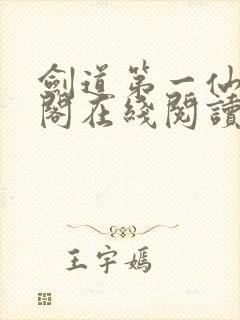 劍道第一仙
閣在綫閱讀
王宇嫣